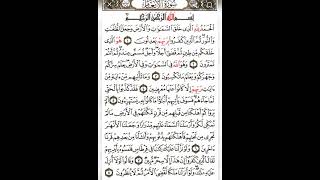 سُورَةُ الأَنْعَامِ
بِسْمِ ٱللَّهِ ٱلرَّحْمَٰنِ ٱلرَّحِيمِ
ٱلْحَمْدُ لِلَّهِ ٱلَّذِى خَلَقَ ٱلسَّمَٰوَٰتِ وَٱلْأَرْضَ وَجَعَلَ ٱلظُّلُمَٰتِ
وَٱلنُّورَ ثُمَّ ٱلَّذِينَ كَفَرُوا۟ بِرَبِّهِمْ يَعْدِلُونَ ١ هُوَ ٱلَّذِى
خَلَقَكُم مِّن طِينٍ ثُمَّ قَضَىٰٓ أَجَلًا وَأَجَلٌ مُّسَمًّى عِندَهُۥ ثُمَّ أَنتُمْ
تَمْتَرُونَ ٢ وَهُوَ ٱللَّهُ فِى ٱلسَّمَٰوَٰتِ وَفِى ٱلْأَرْضِ يَعْلَمُ سِرَّكُمْ
وَجَهْرَكُمْ وَيَعْلَمُ مَا تَكْسِبُونَ ٣ وَمَا تَأْتِيهِم مِّنْ ءَايَةٍ مِّنْ
ءَايَٰتِ رَبِّهِمْ إِلَّا كَانُوا۟ عَنْهَا مُعْرِضِينَ ٤ فَقَدْ كَذَّبُوا۟
بِٱلْحَقِّ لَمَّا جَآءَهُمْ فَسَوْفَ يَأْتِيهِمْ أَنۢبَٰٓؤُا۟ مَا كَانُوا۟ بِهِۦ يَسْتَهْزِءُونَ ٥
أَلَمْ يَرَوْا۟ كَمْ أَهْلَكْنَا مِن قَبْلِهِم مِّن قَرْنٍ مَّكَّنَّٰهُمْ فِى ٱلْأَرْضِ مَا لَمْ
نُمَكِّن لَّكُمْ وَأَرْسَلْنَا ٱلسَّمَآءَ عَلَيْهِم مِّدْرَارًا وَجَعَلْنَا ٱلْأَنْهَٰرَ
تَجْرِى مِن تَحْتِهِمْ فَأَهْلَكْنَٰهُم بِذُنُوبِهِمْ وَأَنشَأْنَا مِنۢ بَعْدِهِمْ
قَرْنًا ءَاخَرِينَ ٦ وَلَوْ نَزَّلْنَا عَلَيْكَ كِتَٰبًا فِى قِرْطَاسٍ فَلَمَسُوهُ بِأَيْدِيهِمْ
لَقَالَ ٱلَّذِينَ كَفَرُوٓا۟ إِنْ هَٰذَآ إِلَّا سِحْرٌ مُّبِينٌ ٧ وَقَالُوا۟ لَوْلَآ أُنزِلَ
عَلَيْهِ مَلَكٌ وَلَوْ أَنزَلْنَا مَلَكًا لَّقُضِىَ ٱلْأَمْرُ ثُمَّ لَا يُنظَرُونَ ٨